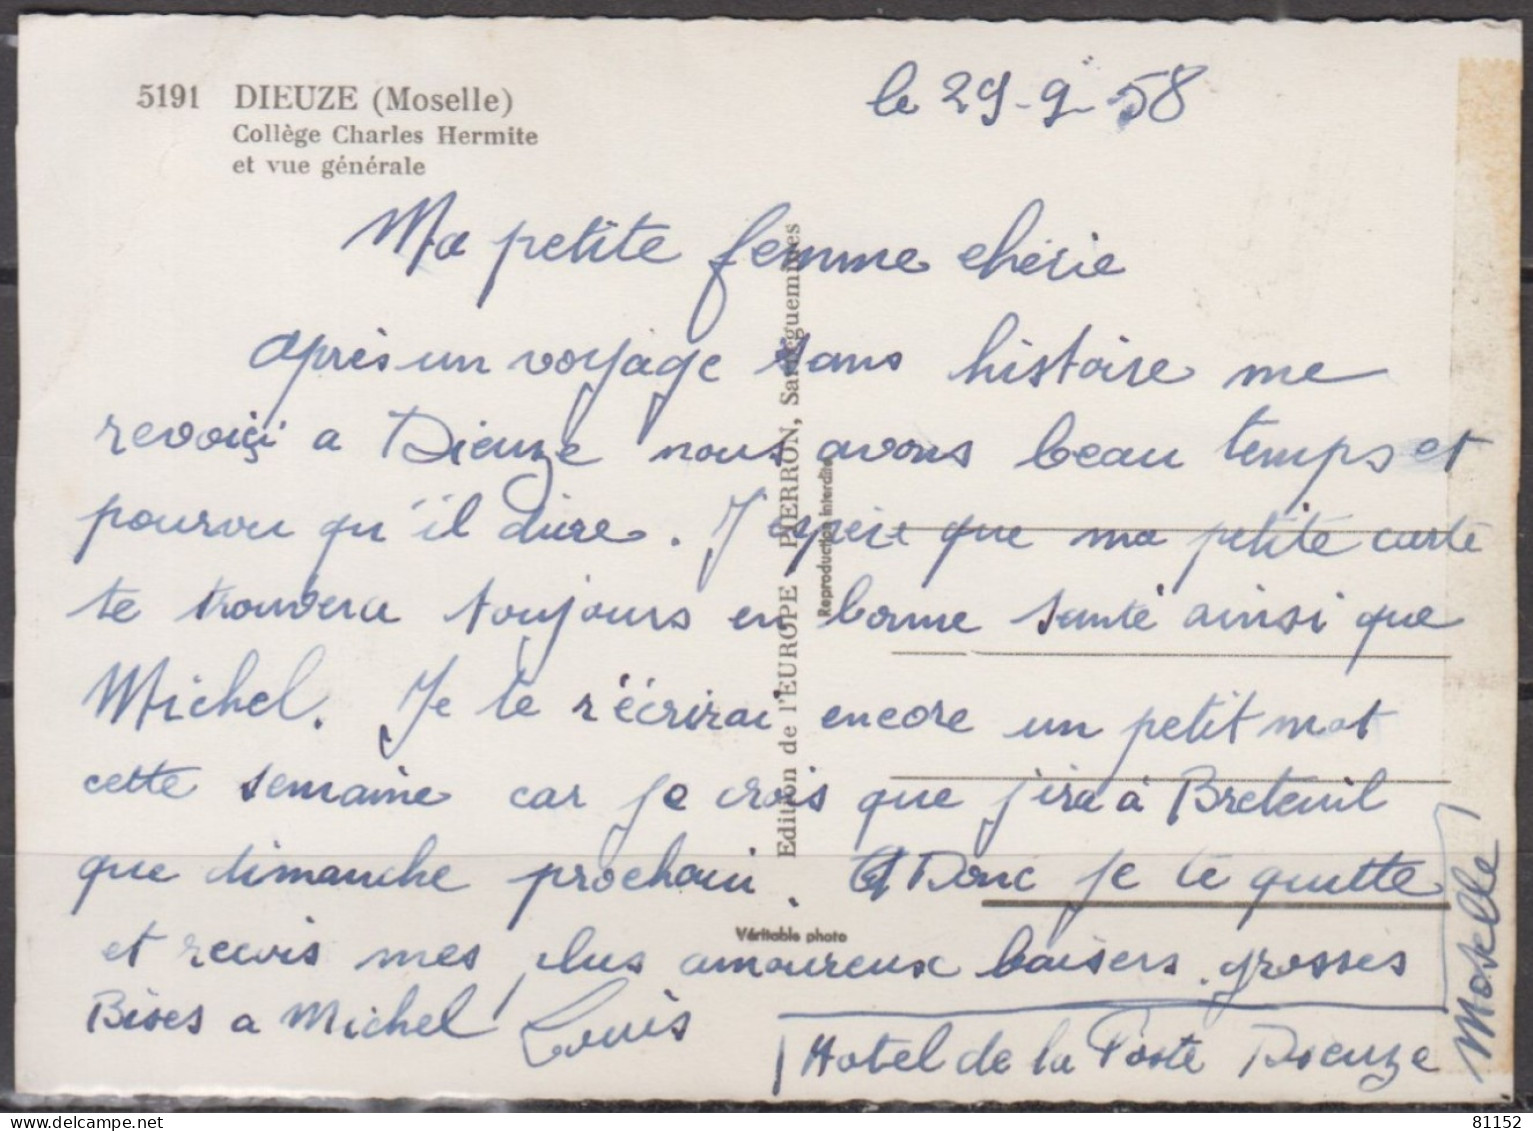 5191 DIEUZE (Moselle)
Collège Charles Hermite
et vue générale
le 29-9-58
Ma petite femme chérie
après un voyage sans histoire me
revoiçi a Dieuze nous avons beau temps et
pourvu qu'il dure. J'espère que ma petite carte
te trouvera toujours en bonne santé ainsi que
Michel. Je te réécrirai encore un petit mot
cette semaine car je crois que j'irai à Breteuil
que dimanche prochain. Donc je te quitte
et reçois mes plus amoureux baisers. grosses
Bises a Michel Louis
Hotel de la Poste Dieuze
Moselle
Edition de l'EUROPE - PIERRON, Sarreguemines
Reproduction interdite
Véritable photo
Delcampe.net
81152